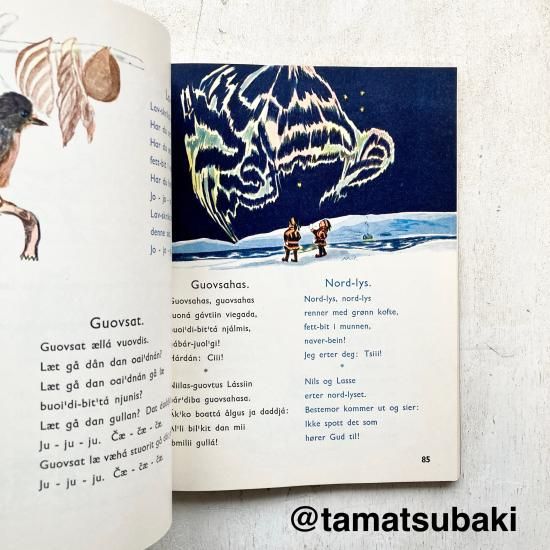 Guovsat.
Guovsat ællá vuovdis.
Læt gå dån dan oai'dnán?
Læt gå dan oai'dnán gå læ
buoi'di-bit'tá njunis?
Læt gå dan gullan? Dat
Ju - ju - ju. Čæ - čæ - čæ.
Guovsat læ væhá stuorit gå
Ju - ju - ju. Čæ - čæ - čæ.
Lav-skrik
Har du
Har du
Har du
fett-bit i
Har du
Jo - jo -
Lav-skrik
denne
Jo - jo
Guovsahas.
Guovsahas, guovsahas
ruoná gávtiin viegada,
buoi'di-bit'tá njálmis,
nábár-juol'gi!
Hárdán: Ciii!
*
Niilas-guovtus Lássiin
hár'diba guovsahasa.
Ák'ko boattá ålgus ja daddjá:
Al'li bil'kit dan mii
Ibmilii gullá!
Nord-lys.
Nord-lys, nord-lys
renner med grønn kofte,
fett-bit i munnen,
naver-bein!
Jeg erter deg: Tsiii!
*
Nils og Lasse
erter nord-lyset.
Bestemor kommer ut og sier:
Ikke spott det som
hører Gud til!
85
@tamatsubaki